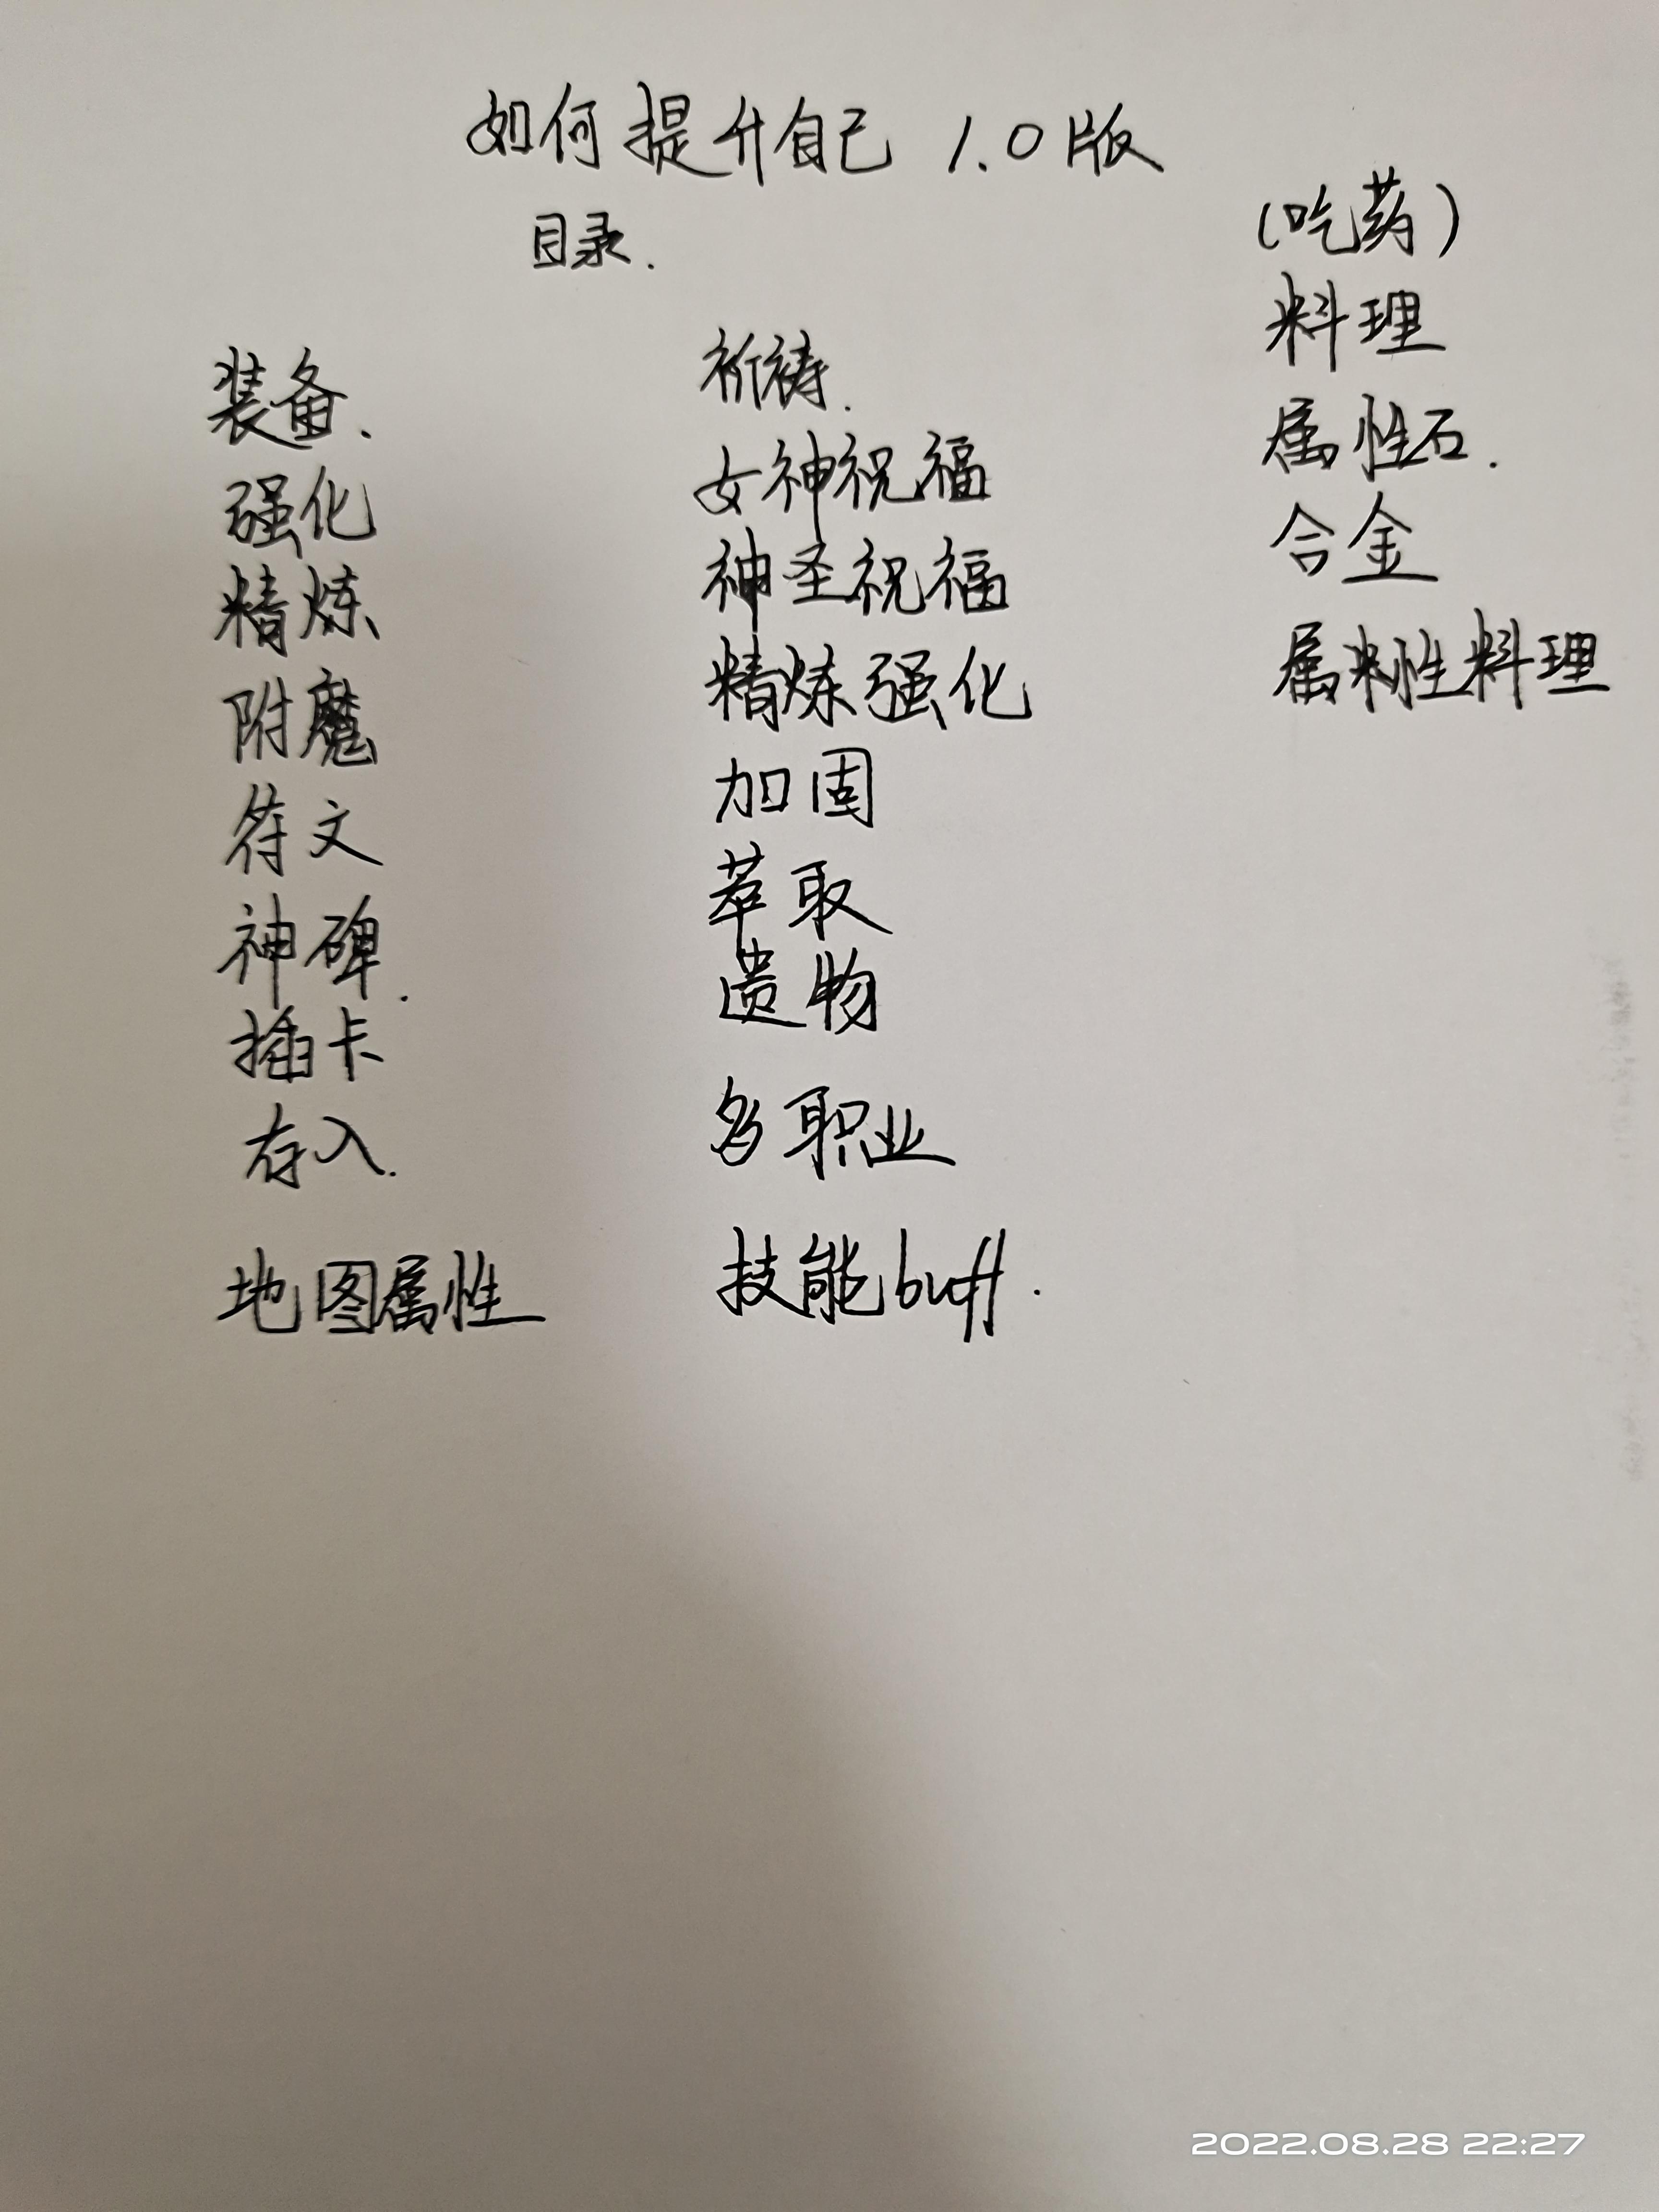 如何提升自己 1.0版
目录.
装备.
强化
精炼
附魔
符文
神碑.
插卡
存入.
地图属性
祈祷.
女神祝福
神圣祝福
精炼强化
加固
萃取
遗物
多职业
技能buff.
(吃药)
料理
属性石.
合金
属性料理
2022.08.28 22:27